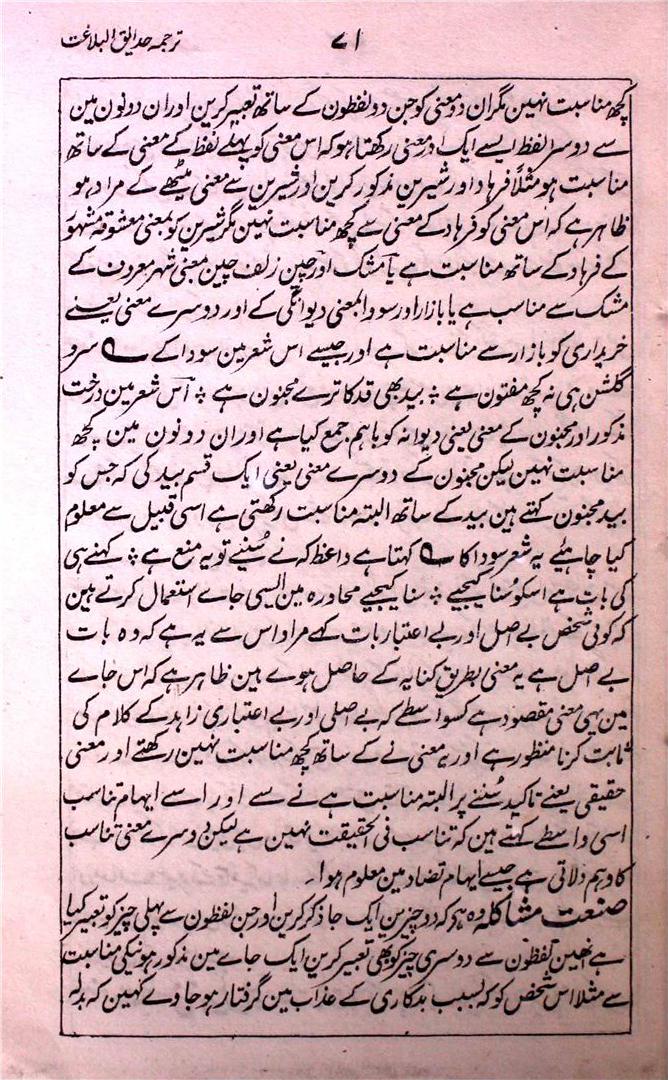 ترجمہ حدایق البلاغت
۷۱
کچھ مناسبت نہین مگر ان دو معنی کو جن دو لفظون کے ساتھ تعبیر کرین اور ان دونون مین
سے دوسرا لفظ ایسے ایک اور معنی رکھتا ہو کہ اس معنی کو پہلے لفظ کے معنی کے ساتھ
مناسبت ہو مثلاً فرہاد اور شیرین مذکور کرین اور شیرین سے معنی میٹھے کے مراد ہو
ظاہر ہے کہ اس معنی کو فرہاد کے معنی سے کچھ مناسبت نہین مگر شیرین کو بمعنی معشوقہ مشہور
کے فرہاد کے ساتھ مناسبت ہے یا مشک اور چین زلف چین بمعنی شہر معروف کے
مشک سے مناسب ہے یا بازار اور سودا بمعنی دیوانگی کے اور دوسرے معنی یعنے
خریداری کو بازار سے مناسبت ہے اور جیسے اس شعر مین سودا کے سرو
گلشن ہی نہ کچھ مفتون ہے ٭ بید بھی قد کا ترے مجنون ہے ٭ اس شعر مین درخت
مذکور اور مجنون کے معنی یعنی دیوانہ کو باہم جمع کیا ہے اور ان دونون مین کچھ
مناسبت نہین لیکن مجنون کے دوسرے معنی یعنی ایک قسم بید کی کہ جس کو
بید مجنون کہتے ہین بید کے ساتھ البتہ مناسبت رکھتی ہے اسی قبیل سے معلوم
کیا چاہئے یہ شعر سودا کا کہتا ہے واعظ کہ نے سُنیے تو یہ منع ہے ٭ کہنے ہی
کی بات ہے اسکو سُنا کیجیے ٭ سنا کیجیے محاورہ مین ایسی جاے استعمال کرتے ہین
کہ کوئی شخص بے اصل اور بے اعتبار بات کہے مراد اس سے یہ ہے کہ وہ بات
بے اصل ہے یہ معنی بطریق کنایہ کے حاصل ہوے ہین ظاہر ہے کہ اس جاے
مین یہی معنی مقصود ہے کسواسطے کہ بے اصلی اور بے اعتباری زاہد کے کلام کی
ثابت کرنا منظور ہے اور یہ معنی نے کے ساتھ کچھ مناسبت نہین رکھتے اور معنی
حقیقی یعنے تاکید سُننے پر البتہ مناسبت ہے نے سے اور اسے ایہام تناسب
اسی واسطے کہتے ہین کہ تناسب فی الحقیقت نہین ہے لیکن دوسرے معنی تناسب
کا وہم دلاتی ہے جیسے ایہام تضاد مین معلوم ہوا۔
صنعت مشاکلہ وہ ہے کہ دو چیزین ایک جا ذکر کرین اور جن لفظون سے پہلی چیز کو تعبیر کیا
ہے انہین لفظون سے دوسری چیز کو بھی تعبیر کرین ایک جاے مین مذکور ہونیکی مناسبت
سے مثلا اس شخص کو کہ بسبب بدکاری کے عذاب مین گرفتار ہو جاوے کہین کہ بدلہ